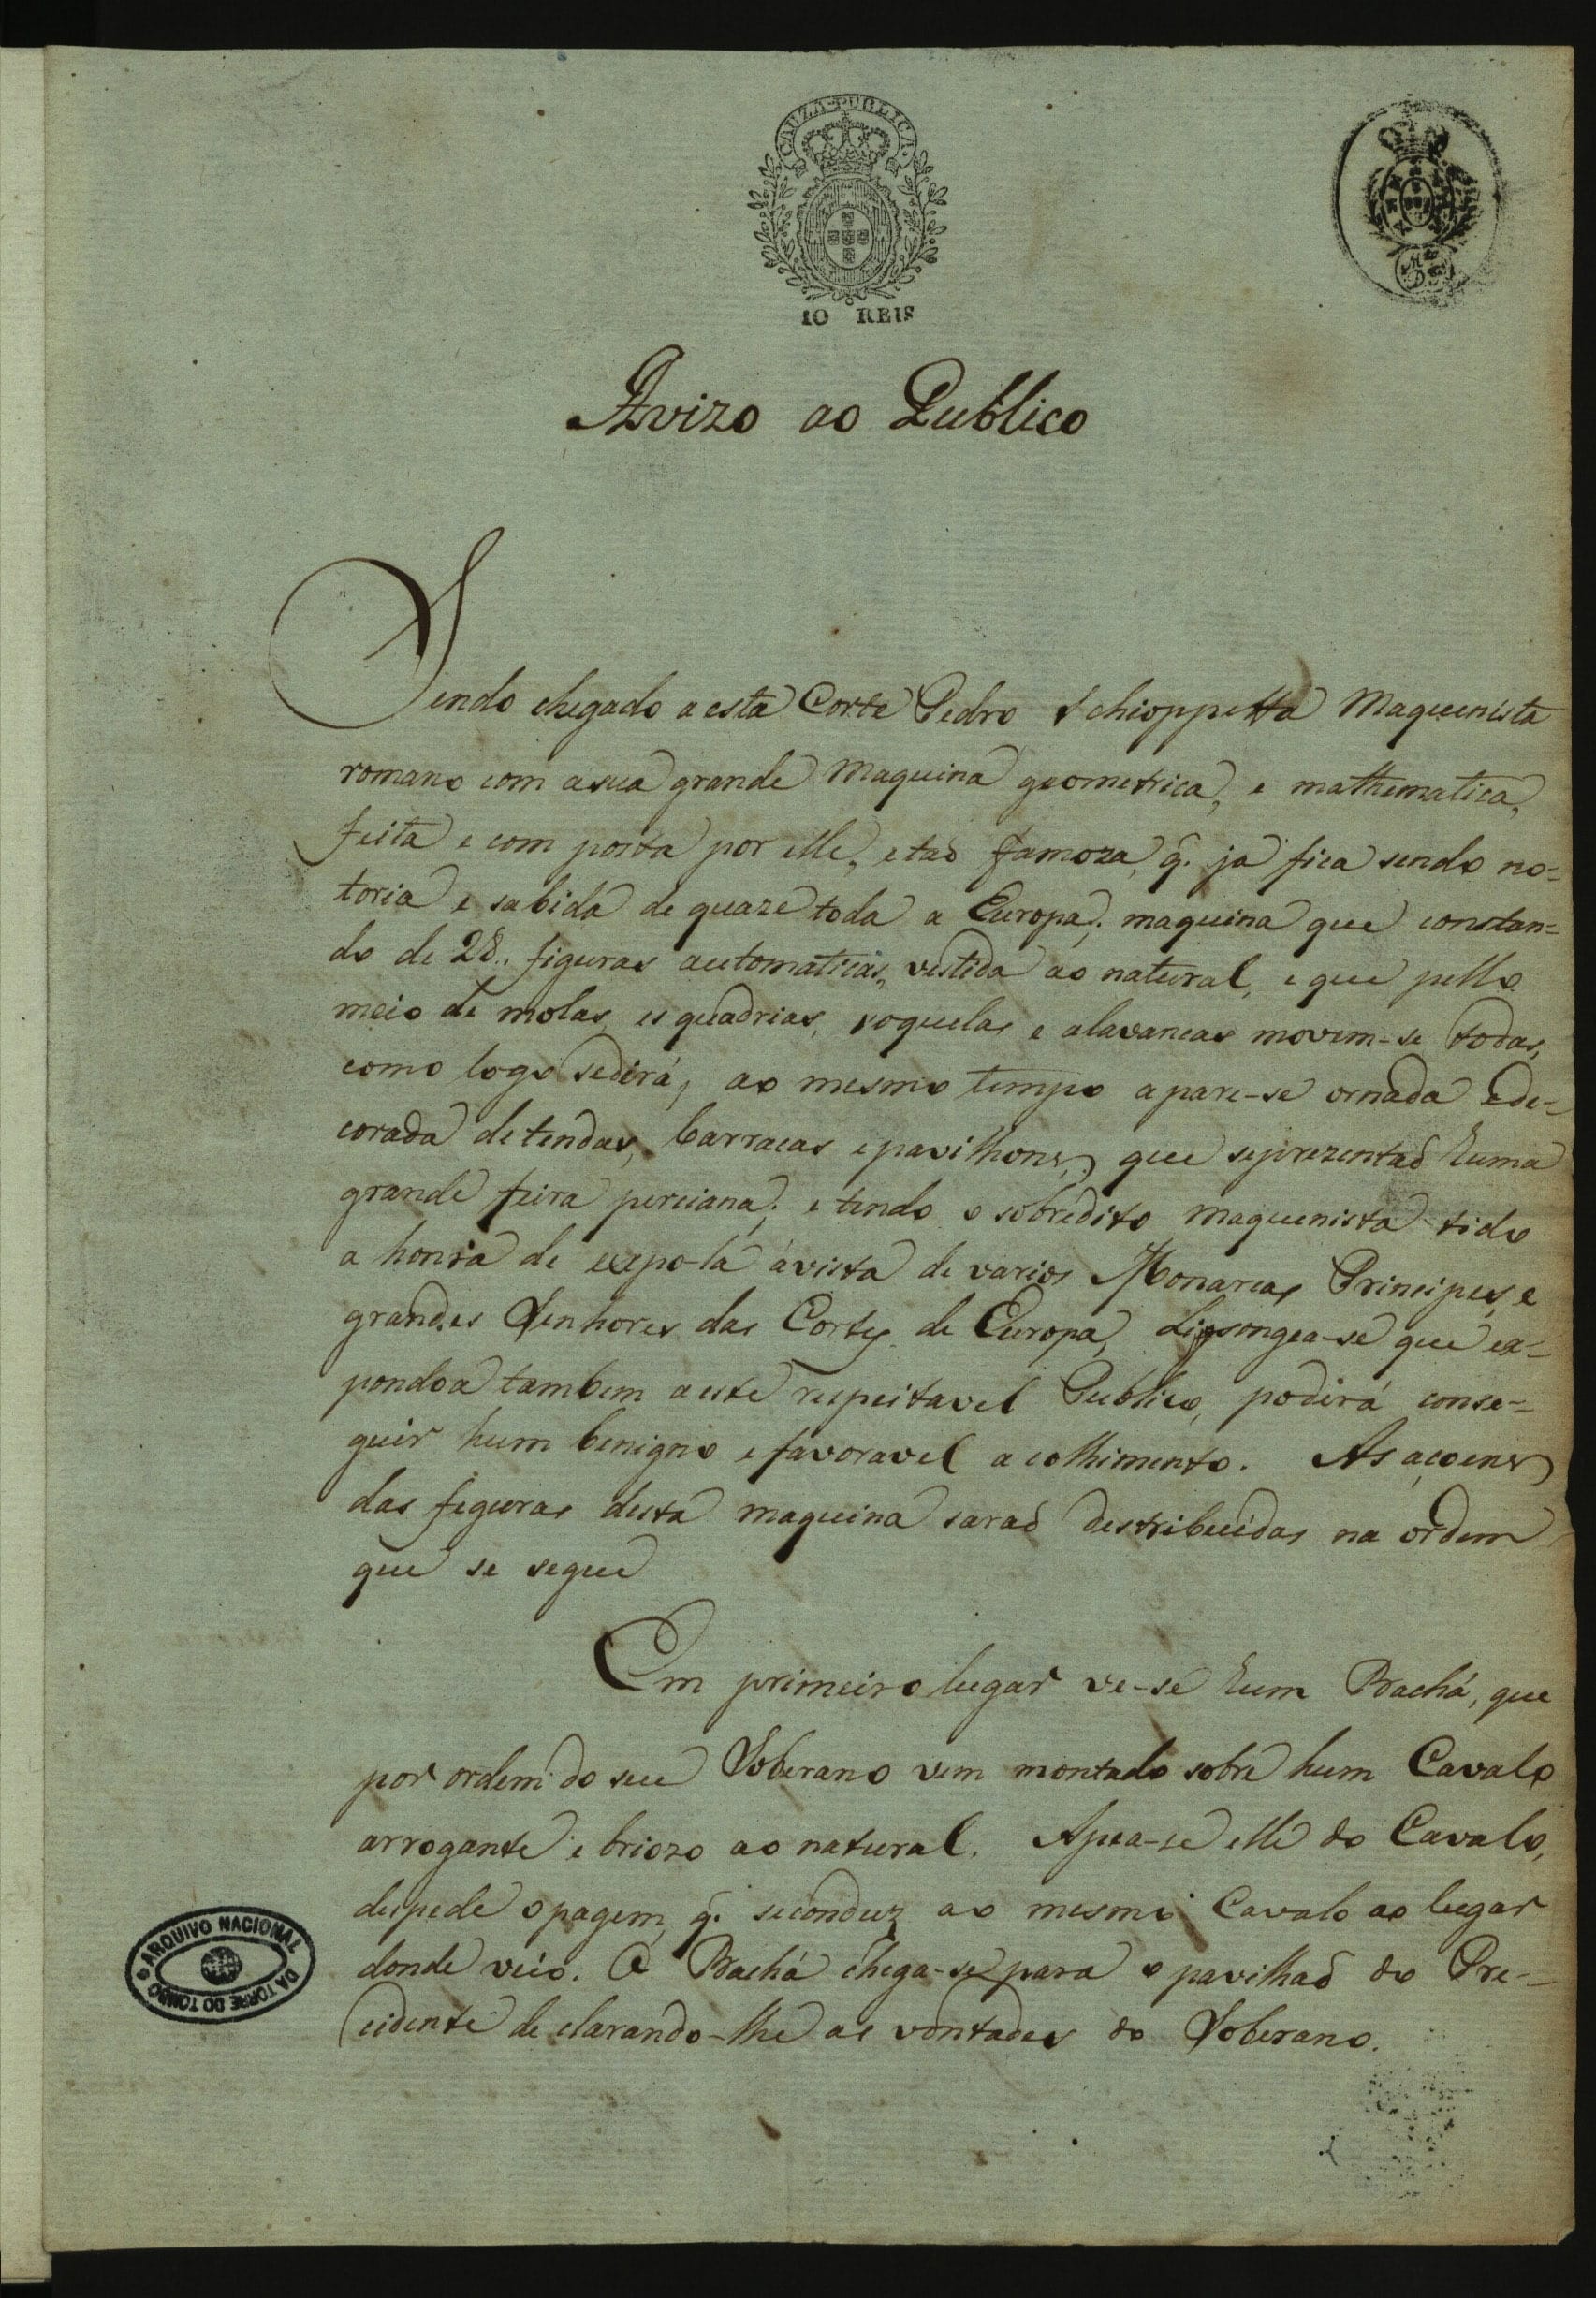 CAUZA PUBLICA
10 REIS
Avizo ao Publico
Sendo chegado a esta Corte Pedro Schioppetta Maquenista
romano com a sua grande Maquina geometrica, e mathematica,
feita e com posta por elle, e taõ famoza, q. ja fica sendo no=
toria e sabida de quaze toda a Europa; maquina que constan=
do de 28.. figuras automaticas, vestida ao natural, e que pello
meio de molas, esquadrias, roquelas e alavancas movem-se todas,
como logo sedirá, ao mesmo tempo apare-se ornada e de=
corada de tendas, barracas e pavilhons, que reprezentaõ huma
grande feira perciana; e tendo o sobredito maquenista tido
a honra de expo-la á vista de varios Monarcas Principes, e
grandes Senhores das Cortes de Europa, lisongea-se que ex=
pondoa tambem a este respeitavel Publico, podirá conse=
guir hum benigno e favoravel acolhimento. As açoens
das feguras desta maquina saraõ destribuidas na ordem
que se segue
Em primeiro lugar ve-se hum Bachá, que
por ordem do seu Soberano vem montado sobre hum Cavalo
arrogante e briozo ao natural. Apea-se elle do Cavalo,
despede o pagem, q. seconduz ao mesmo Cavalo ao lugar
donde veio. O Bachá chega-se para o pavilhaõ do Pre=
cidente declarando-lhe as vontades do Soberano.
ARQUIVO NACIONAL DA TORRE DO TOMBO